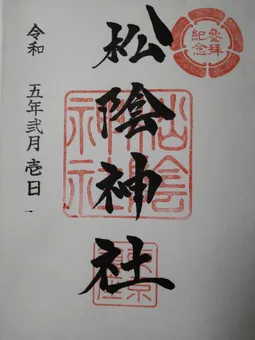 参拝
紀念
松陰神社
松陰
神社
令和 五年 弐月 壱日